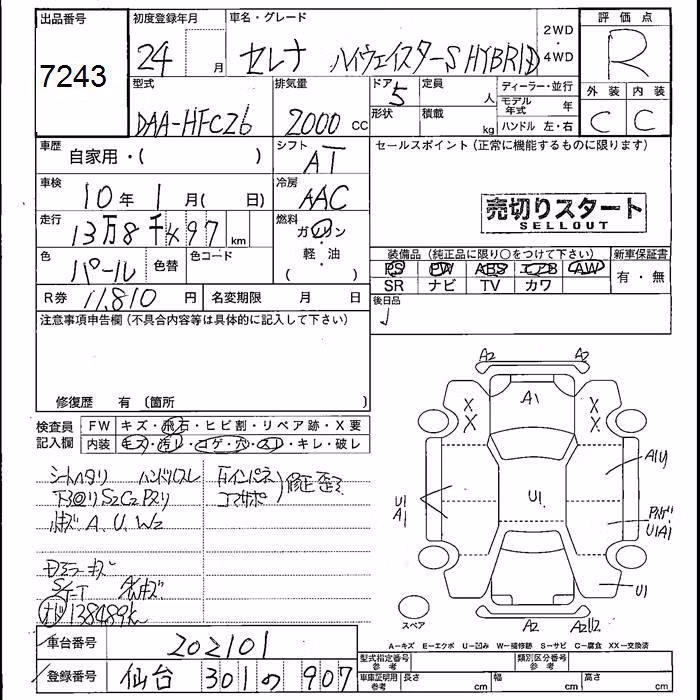 出品番号
7243
初度登録年月
24 月
車名・グレード
セレナ ハイウェイスターS HYBRID
2WD
・
4WD
評価点
R
外装 内装
C C
型式
DAA-HFC26
排気量
2000 cc
ドア
5
形状
定員
人
積載
kg
ディーラー・並行
モデル年式 年
ハンドル 左・右
車歴
自家用・( )
シフト
AT
車検
10年 1月( 日)
冷房
AAC
走行
13万8千497km
燃料
ガソリン
・
軽・油
( )
色
パール
色替
色コード
R券 11,810円
名変期限 月 日
セールスポイント(正常に機能するものに限ります)
売切りスタート
SELLOUT
装備品(純正品に限り○をつけて下さい)
PS PW ABS エアB AW
SR ナビ TV カワ
新車保証書
有・無
後日品
注意事項申告欄(不具合内容等は具体的に記入して下さい)
修復歴 有 〔箇所 〕
検査員記入欄
FW キズ・飛石・ヒビ割・リペア跡・X要
内装 キズ・汚レ・コゲ・穴・スレ・キレ・破レ
シートヘタリ ハンドルスレ
下廻りS2C2Pスリ
小キズ A、U、W2
右インパネ
コアサポ
修正歪
ドアミラーキズ
138489km
A2 A2
A1
X X
X X
U1
A1
U1
U1A1
U1
A2 A2U2
スペア
A-キズ E-エクボ U-凹み W-補修跡 S-サビ C-腐食 XX-交換済
車台番号 202101
登録番号 仙台 301 の 907
型式指定番号
参考
類別区分番号
参考
車庫証明用
参考
長さ cm 幅 cm 高さ cm